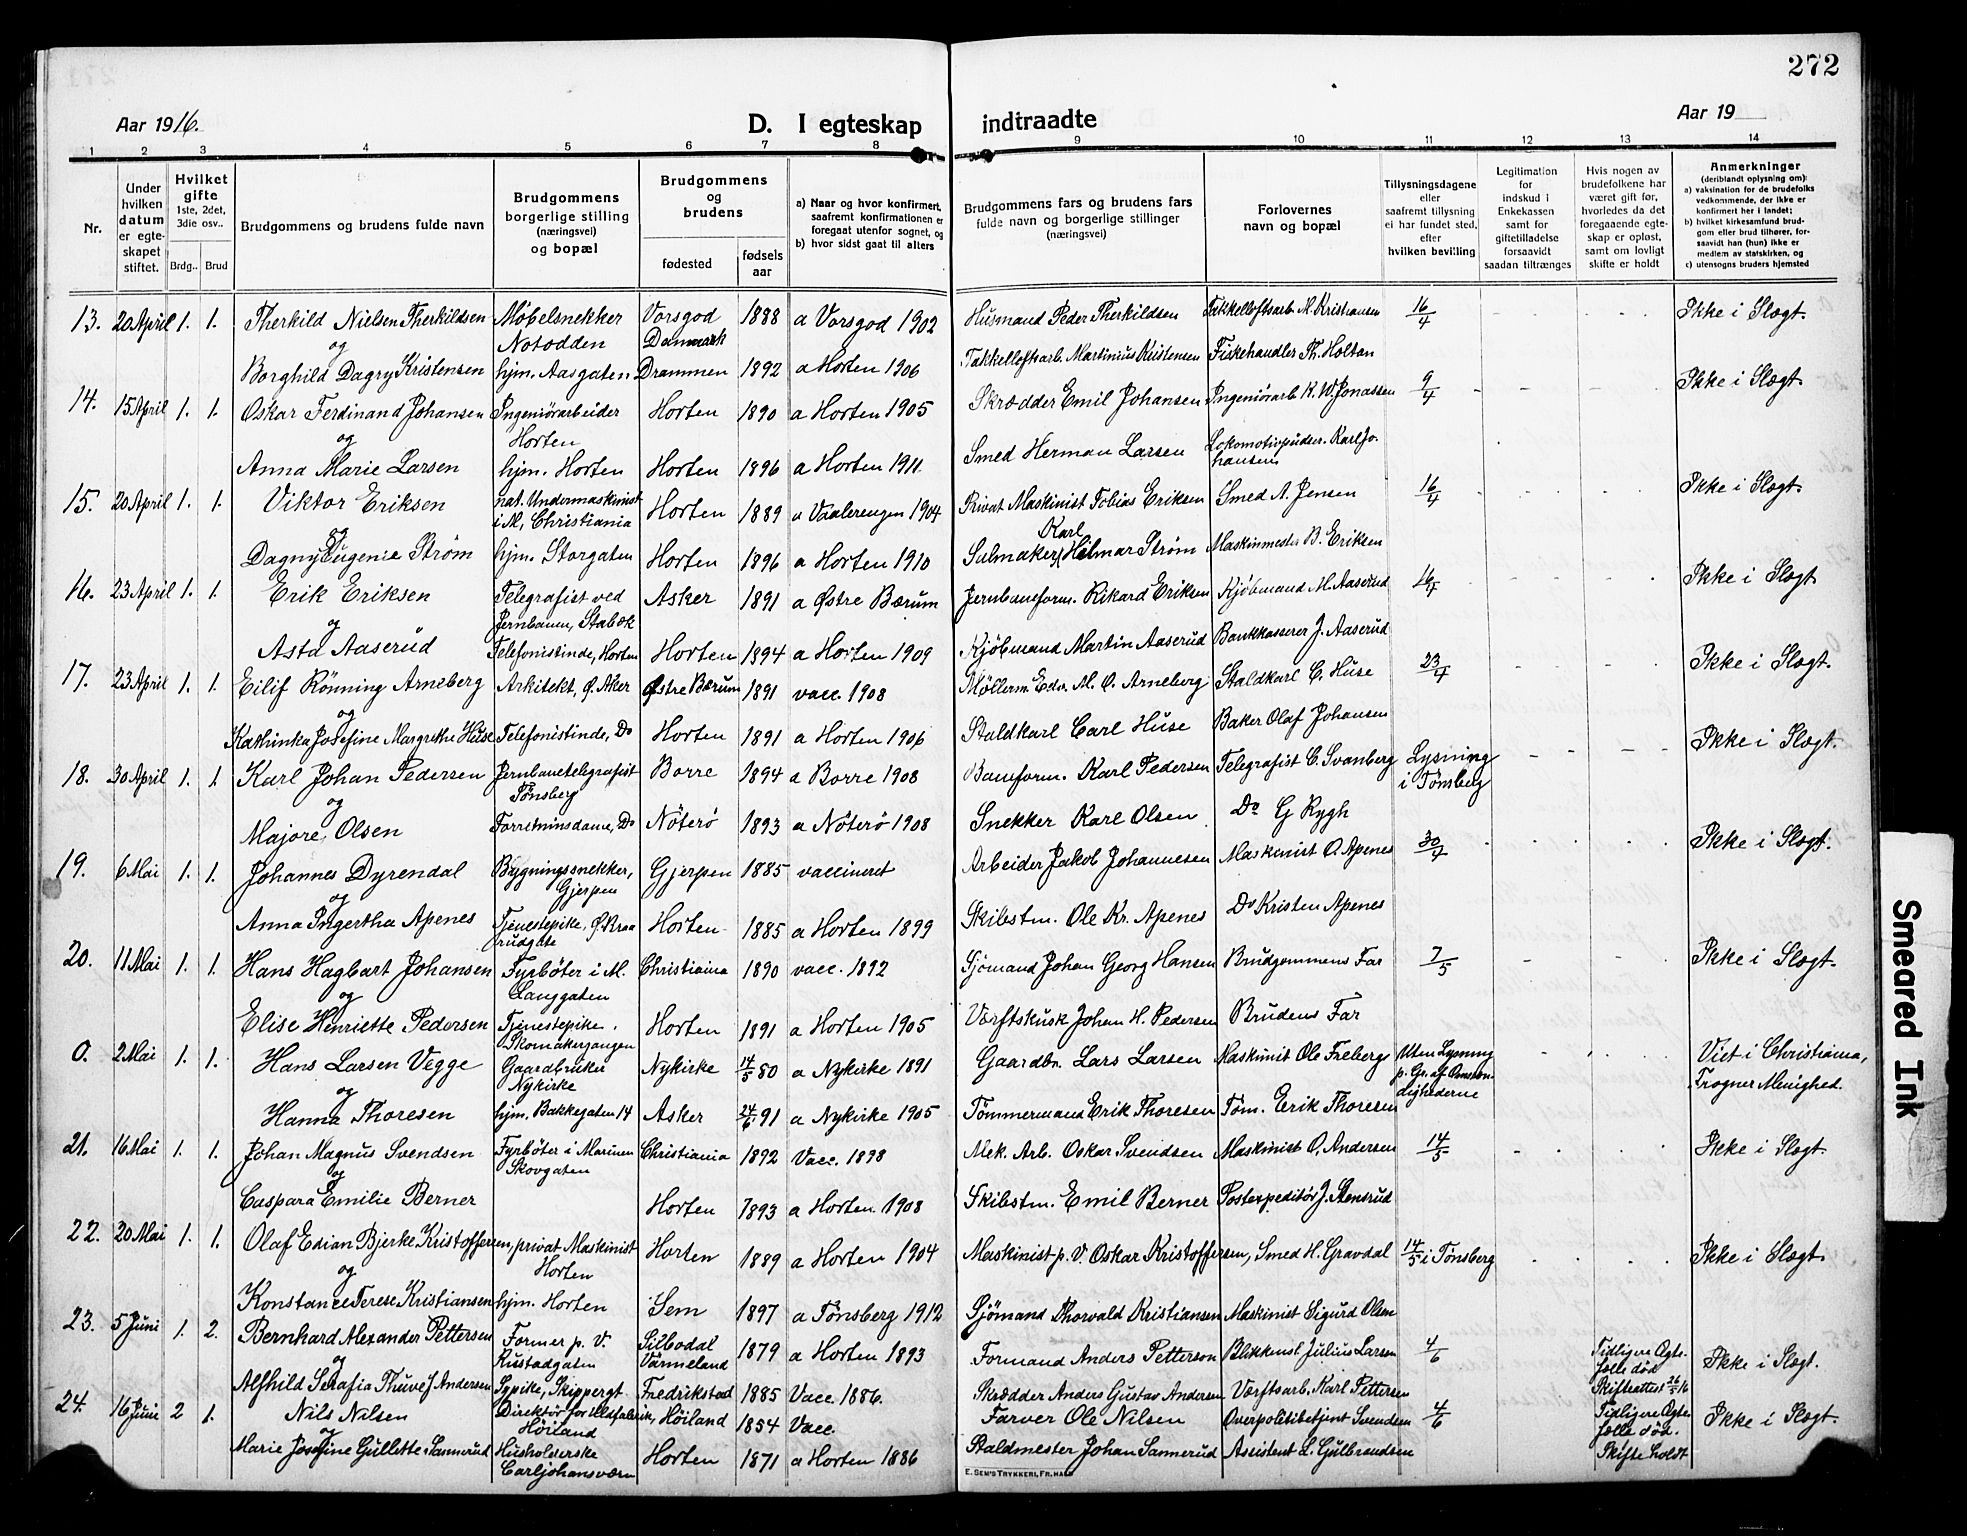 272
Aar 1916.
D. I egteskap indtraadte
Aar 19
1 2 3 4 5 6 7 8 9 10 11 12 13 14
Nr.
Under hvilken datum er egteskapet stiftet.
Hvilket gifte 1ste, 2det, 3die osv..
Brdg.. Brud
Brudgommens og brudens fulde navn
Brudgommens borgerlige stilling (næringsvei) og bopæl
Brudgommens og brudens
fødested
fødsels aar
a) Naar og hvor konfirmert, saafremt konfirmationen er foregaat utenfor sognet, og
b) hvor sidst gaat til alters
Brudgommens fars og brudens fars fulde navn og borgerlige stillinger (næringsvei)
Forlovernes navn og bopæl
Tillysningsdagene eller saafremt tillysning ei har fundet sted, efter hvilken bevilling
Legitimation for indskud i Enkekassen samt for giftetilladelse forsaavidt saadan tiltrænges
Hvis nogen av brudefolkene har været gift før, hvorledes da det foregaaende egteskap er opløst, samt om lovligt skifte er holdt
Anmerkninger (deriblandt oplysning om): a) vaksination for de brudefolks vedkommende, der ikke er konfirmert her i landet; b) hvilket kirkesamfund brudgom eller brud tilhører, forsaavidt han (hun) ikke er medlem av statskirken, og c) utensogns bruders hjemsted
13. 20 April 1. 1. Therkild Nielsen Therkildsen Møbelsnekker Notodden Vorsgod Danmark 1888 a Vorsgod 1902 Husmand Peder Therkildsen Takkelloftsarb. M. Kristiansen 16/4 Ikke i Slægt.
og
Borghild Dagny Kristensen hjm. Aasgaten Drammen 1892 a Horten 1906 Takkelloftsarb. Martinius Kristensen Fiskehandler Th. Holtan
14. 15 April 1. 1. Oskar Ferdinand Johansen Ingeniørarbeider Horten Horten 1890 a Horten 1905 Skrædder Emil Johansen Ingeniørarb. K. W. Jonassen 9/4 Ikke i Slægt.
og
Anna Marie Larsen hjm. Horten Horten 1896 a Horten 1911 Smed Herman Larsen Lokomotivpudser. Karl Johansen
15. 20 April 1. 1. Viktor Eriksen nat. Undermaskinist i M, Christiania Horten 1889 a Vaalerengen 1904 Privat Maskinist Tobias Eriksen Smed A. Jensen 16/4 Ikke i Slægt.
og
Dagny Eugenie Strøm hjm. Storgaten Horten 1896 a Horten 1910 Salmaker Karl Hilmar Strøm Maskinmester B. Eriksen
16. 23 April 1. 1. Erik Eriksen Telegrafist ved Jernbanen, Stabæk Asker 1891 a Østre Bærum Jernbaneform. Rikard Eriksen Kjøbmand M. Aaserud 16/4 Ikke i Slægt
og
Asta Aaserud Telefonistinde, Horten Horten 1894 a Horten 1909 Kjøbmand Martin Aaserud Bankkasserer J. Aaserud
17. 23 April 1. 1. Eilif Rönning Arneberg Arkitekt, Ø. Aker Østre Bærum 1891 vacc. 1908 Møllerm. Edv. M. O. Arneberg Staldkarl C. Huse 23/4 Ikke i Slægt.
og
Kathinka Josefine Margrethe Huse Telefonistinde, Do Horten 1891 a Horten 1906 Staldkarl Carl Huse Baker Olaf Johansen
18. 30 April 1. 1. Karl Johan Pedersen Jernbanetelegrafist Tönsberg Borre 1894 a Borre 1908 Baneform. Karl Pedersen Telegrafist C. Svanberg Lysning i Tønsberg Ikke i Slægt.
og
Majore, Olsen Forretninsdame, Do Nöterö 1893 a Nöterö 1908 Snekker Karl Olsen Do G Rygh
19. 6 Mai 1. 1. Johannes Dyrendal Bygningssnekker, Gjerpen Gjerpen 1885 vaccineret Arbeider Jakob Johannesen Maskinist O. Apenes 30/4 Ikke i Slægt.
og
Anna Ingertha Apenes Tjenestepike, Ø. Braarudgate Horten 1885 a Horten 1899 Skibstm. Ole Kr. Apenes Do Kristen Apenes
20. 11 Mai 1. 1. Hans Hagbart Johansen Fyrbøter i M. Langgaten Christiania 1890 vacc. 1892 Sjømand Johan Georg Hansen Brudgommens Far 7/5 Ikke i Slægt.
og
Elise Henriette Pedersen Tjenestepike. Skomakergangen Horten 1891 a Horten 1905 Værftskusk Johan H. Pedersen Brudens Far
0. 2 Mai 1. 1. Hans Larsen Vegge Gaardbruker Nykirke Nykirke 14/5 80 a Nykirke 1891 Gaardbr. Lars Larsen Maskinist Ole Freberg Uten Lysning p. Gr. af Omstændighederne Viet i Christiania, Frogner Menighed.
og
Hanna Thoresen hjm. Bakkegaten 14 Asker 24/6 91 a Nykirke 1905 Tömmermand Erik Thoresen Töm. Erik Thoresen
21. 16 Mai 1. 1. Johan Magnus Svendsen Fyrbøter i Marinen Skovgaten Christiania 1892 Vacc. 1898 Mek. Arb. Oskar Svendsen Maskinist O. Andersen 14/5 Ikke i Slægt.
og
Caspara Emilie Berner Horten 1893 a Horten. 1908 Skibstm. Emil Berner Postexpeditör J. Stensrud
22. 20 Mai 1. 1. Olaf Edian Bjerke Kristoffersen, privat Maskinist Horten Horten 1889 a Horten 1904 Maskinist p. V. Oskar Kristoffersen, Smed H. Gravdal 14/5 i Tønsberg Ikke i Slægt.
og
Konstance Terese Kristiansen hjm. Horten Sem 1897 a Tønsberg 1912 Sjömand Thorvald Kristiansen Maskinist Sigurd Olsen
23. 5 Juni 1. 2. Bernhard Alexander Pettersen Former p. V. Rustadgaten Silbodal Värmeland 1879 a Horten 1893 Formand Anders Petterson Blikkensl. Julius Larsen 4/6 Tidligere Egtefælle död Skifteattest 26/5 16 Ikke i Slægt.
og
Alfhild Serafia Thuve f. Andersen Sypike, Skippergt Fredrikstad 1885 Vacc. 1886. Skrædder Anders Gustav Andersen Værftsarb. Karl Pettersen
24. 16 Juni 2 1. Nils Nilsen Direktör for illsfabrik, Höiland Höiland 1854 Vacc. Farver Ole Nilsen Overpolitibetjent Svendsen 4/6 Tidligere Egtefælle död. Skifte holdt Ikke i Slægt.
og
Marie Josefine Gullette Sannerud Husholderske Carljohansværn Horten 1871 a Horten 1886 Staldmester Johan Sannerud Assistent L. Gulbrandsen
E. SEM'S TRYKKERI, FR.HALD
Smeared Ink